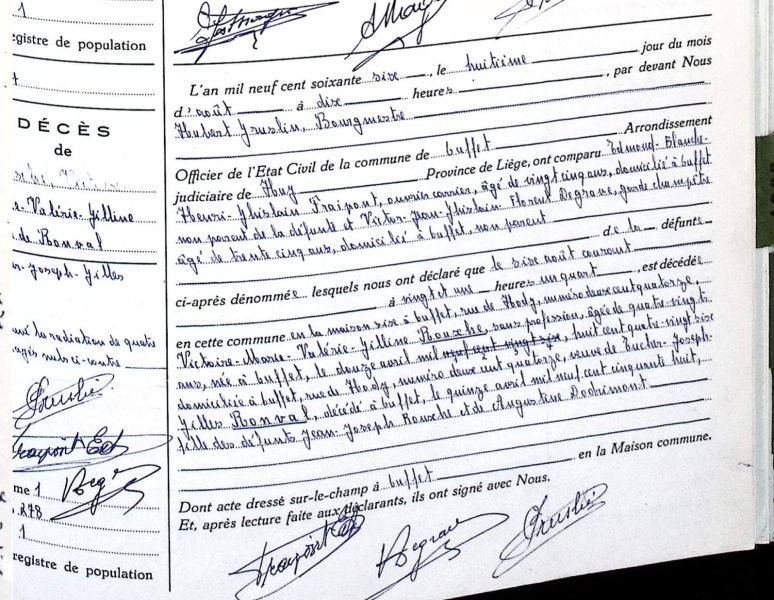 1
egistre de population
DÉCÈS
de
e-Valérie-Gilline
de Ronval
r-Joseph-Gilles
la radiation de quatre
me 1
278
1
registre de population
L'an mil neuf cent soixante six, le huitième jour du mois
d'août à dix heures, par devant Nous
Hubert Bourgmestre
Officier de l'Etat Civil de la commune de Buffet Arrondissement
judiciaire de Huy Province de Liège, ont comparu Edmond-Blanche-
Henri-Ghislain Fraipont, ouvrier carrier, âgé de vingt cinq ans, domicilié à Buffet
non parent de la défunte et Victor-Jean-Ghislain Florent Degrave, garde champêtre
âgé de trente cinq ans, domicilié à Buffet, non parent de la défunte
ci-après dénommée lesquels nous ont déclaré que le six août courant
à vingt et une heures un quart, est décédée
en cette commune en la maison sise à Buffet, rue de Hody, numéro deux cent quatorze,
Victoire-Marie-Valérie-Gilline Rouxhe, sans profession, âgée de quatre-vingts
ans, née à Buffet, le douze avril mil neuf cent vingt six, huit cent quatre-vingt six
domiciliée à Buffet, rue de Hody, numéro deux cent quatorze, veuve de Joseph-
Gilles Ronval, décédé à Buffet, le quinze avril mil neuf cent cinquante huit,
fille des défunts Jean-Joseph Rouxhe et de Augustine
Dont acte dressé sur-le-champ à Buffet en la Maison commune.
Et, après lecture faite aux déclarants, ils ont signé avec Nous.
Fraipont Ed
Degrave